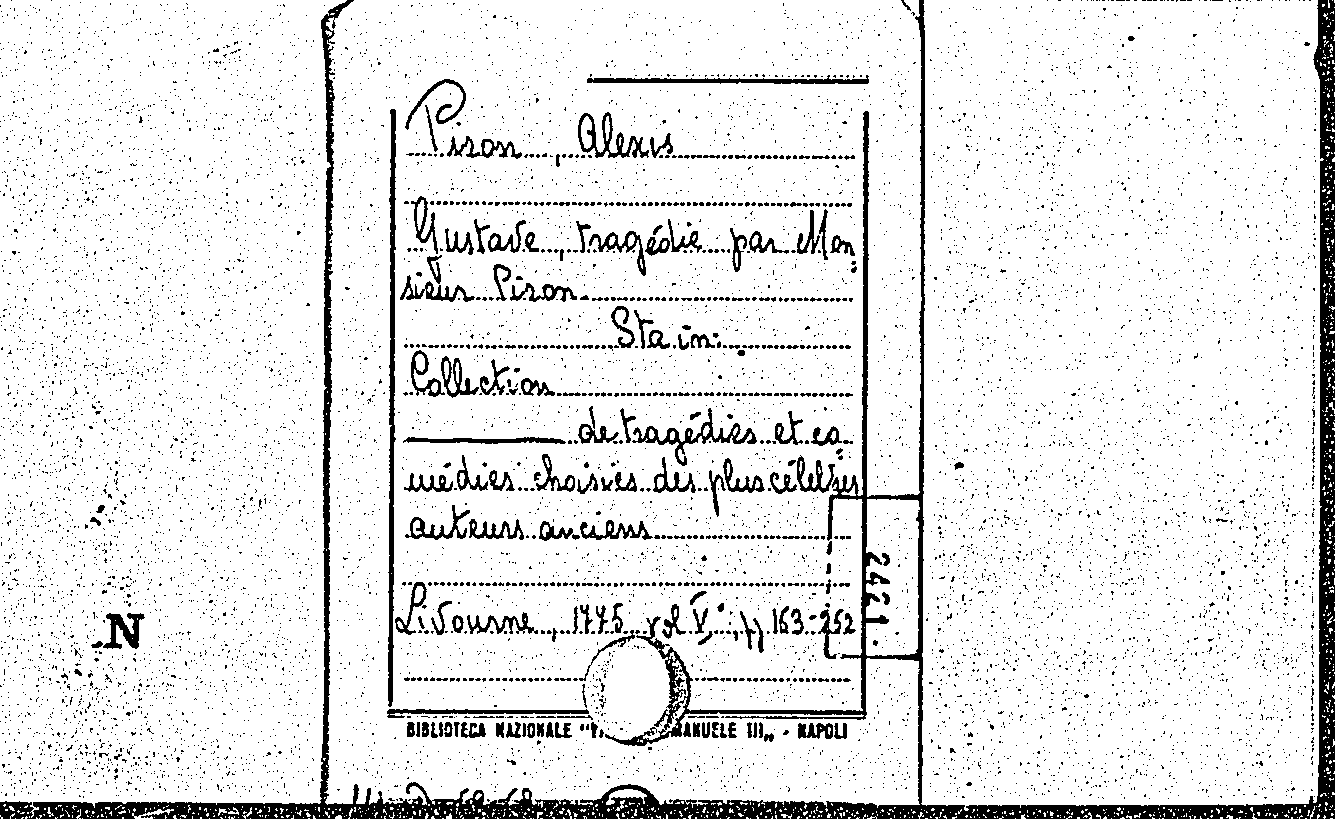 Piron, Alexis
Gustave, tragédie par Mon=
sieur Piron.
Sta in:
Collection
de tragédies et co=
médies choisies des plus célèbres
auteurs anciens
Livourne, 1775, vol V°; pp 163-252
BIBLIOTECA NAZIONALE MANUELE III„ - NAPOLI
2421.
N